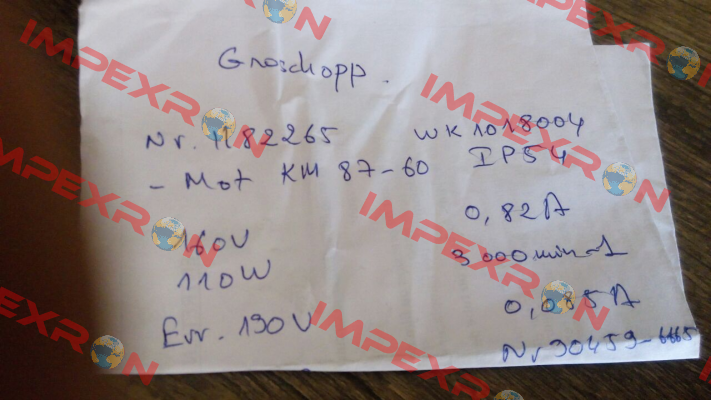 Groschopp.
Nr. 1182265 WK1018004
- Mot KM 87-60 IP54
160V 0,82A
110W 3000min-1
Err. 190V 0,085A
Nr90459-6665
IMPEXRON
IMPEXRON
IMPEXRON
IMPEXRON
IMPEXRON
IMPEXRON
IMPEXRON
IMPEXRON